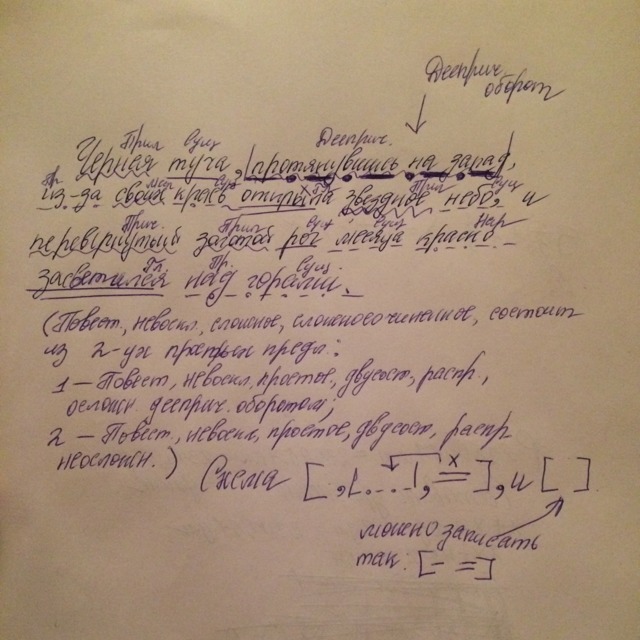 Дееприч.
оборот
Прил Сущ Дееприч.
Черная туча, |протянувшись на запад,|
Пр. Мест Сущ Гл Прил Сущ
из-за своих краев открыла звездное небо, и
Прич. Прил Сущ Сущ Нар
перевернутый золотой рог месяца красно
Гл. Пр. Сущ
засветился над горами.
(Повест, невоскл, сложное, сложносочиненное, состоит
из 2-ух простых предл:
1 – Повест, невоскл, простое, двусост, распр.,
осложн. дееприч. оборотом;
2 – Повест, невоскл, простое, двусост, распр
неосложн.)
Схема [ ,|. _ . _|, х = ], и [ ].
можно записать
так: [– =]